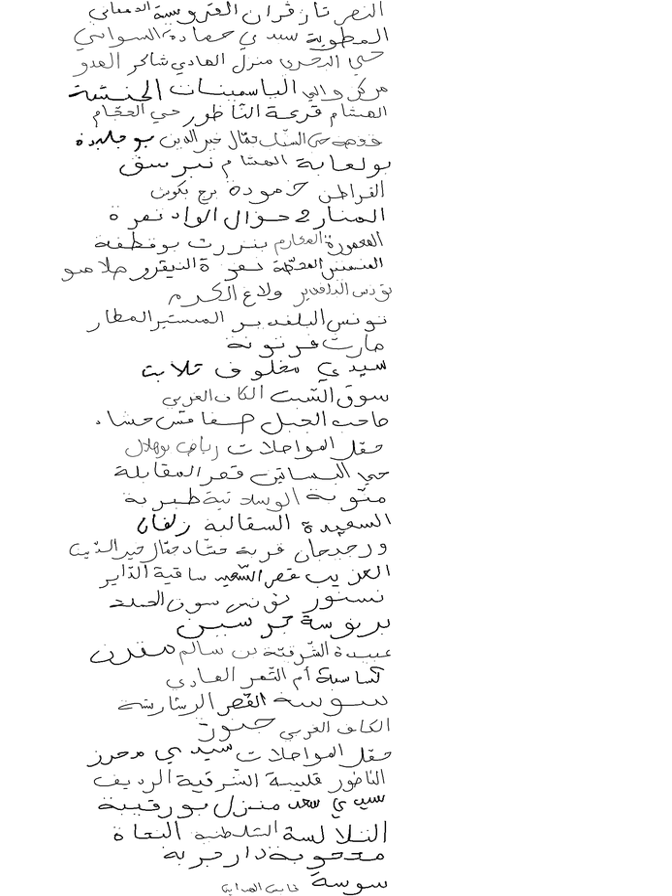 النصر تازغران العروسة الدهماني
المطوية سيدي حمادة السواسي
حي البحري منزل الهادي شاكر العدو
مركز والي الياسمينات الخنشة
الهشام قرعة الناظور حي الحجام
تمثال خير الدين بوجليدة
بولعابة الهشام نبر سق
القراطن حمودة برج يكوش
المنار 2 حوال الواد نصرة
المعمورة المحارم بنزرت بوقطفة
النيقرو
تونس البلفدير ولاغ الكرم
تونس البلفدير المنستير المطار
مارث فرنونة
سيدي مخلوف تلابت
سوق السبت الكاف الغربي
صاحب الجبل صفاقس حشاد
حقل المواصلات رياض بوهلال
حي البساتين قصر المقابلة
منوبة الوسلاتية طبرية
السعيدة السقالبة زلفان
ورجيجان قرية حشاد تمثال خير الدين
العزيب قصر السعيد ساقية الداير
تستور تونس سوق الجلد
بربوسة جرسين
عبيدة الشرفية بن سالم مقرن
كساسبة أم الثمر الهادي
سوسة القصر الريتارشة
الكاف الغربي جنوة
حقل المواصلات سيدي محرز
الناظور قليبية الشرقية الرديف
سيدي سعد منزل بورقيبة
التلالسة الشلطنية النحاة
محجوبة دار جربة
سوسة قابس الصدايق